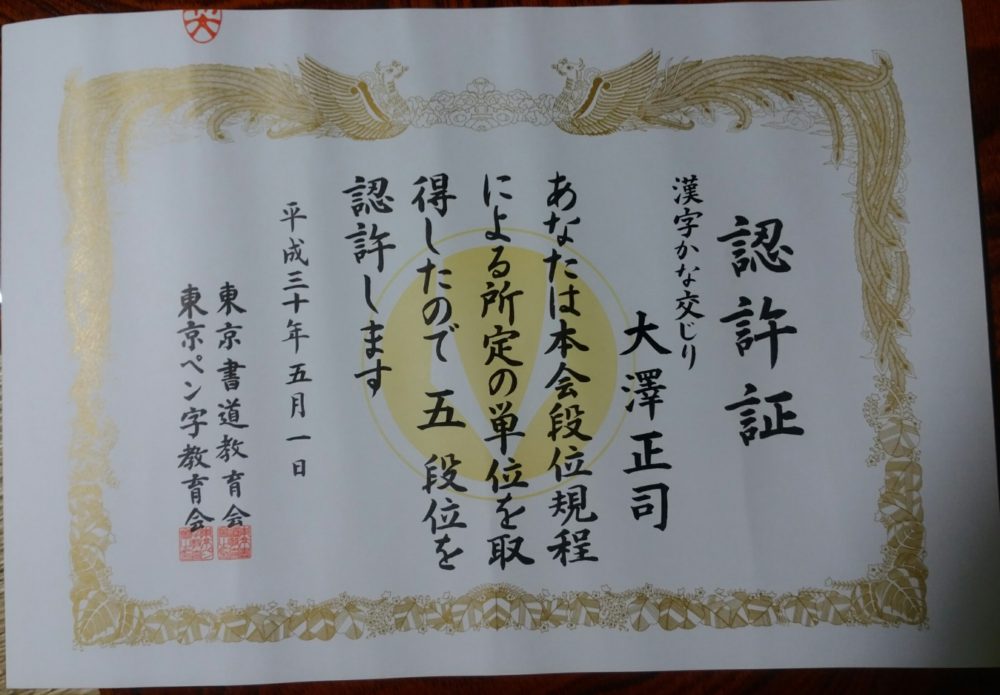 認許証
漢字かな交じり
大澤正司
あなたは本会段位規程
による所定の単位を取
得したので 五 段位を
認許します
平成三十年五月一日
東京書道教育会
東京ペン字教育会